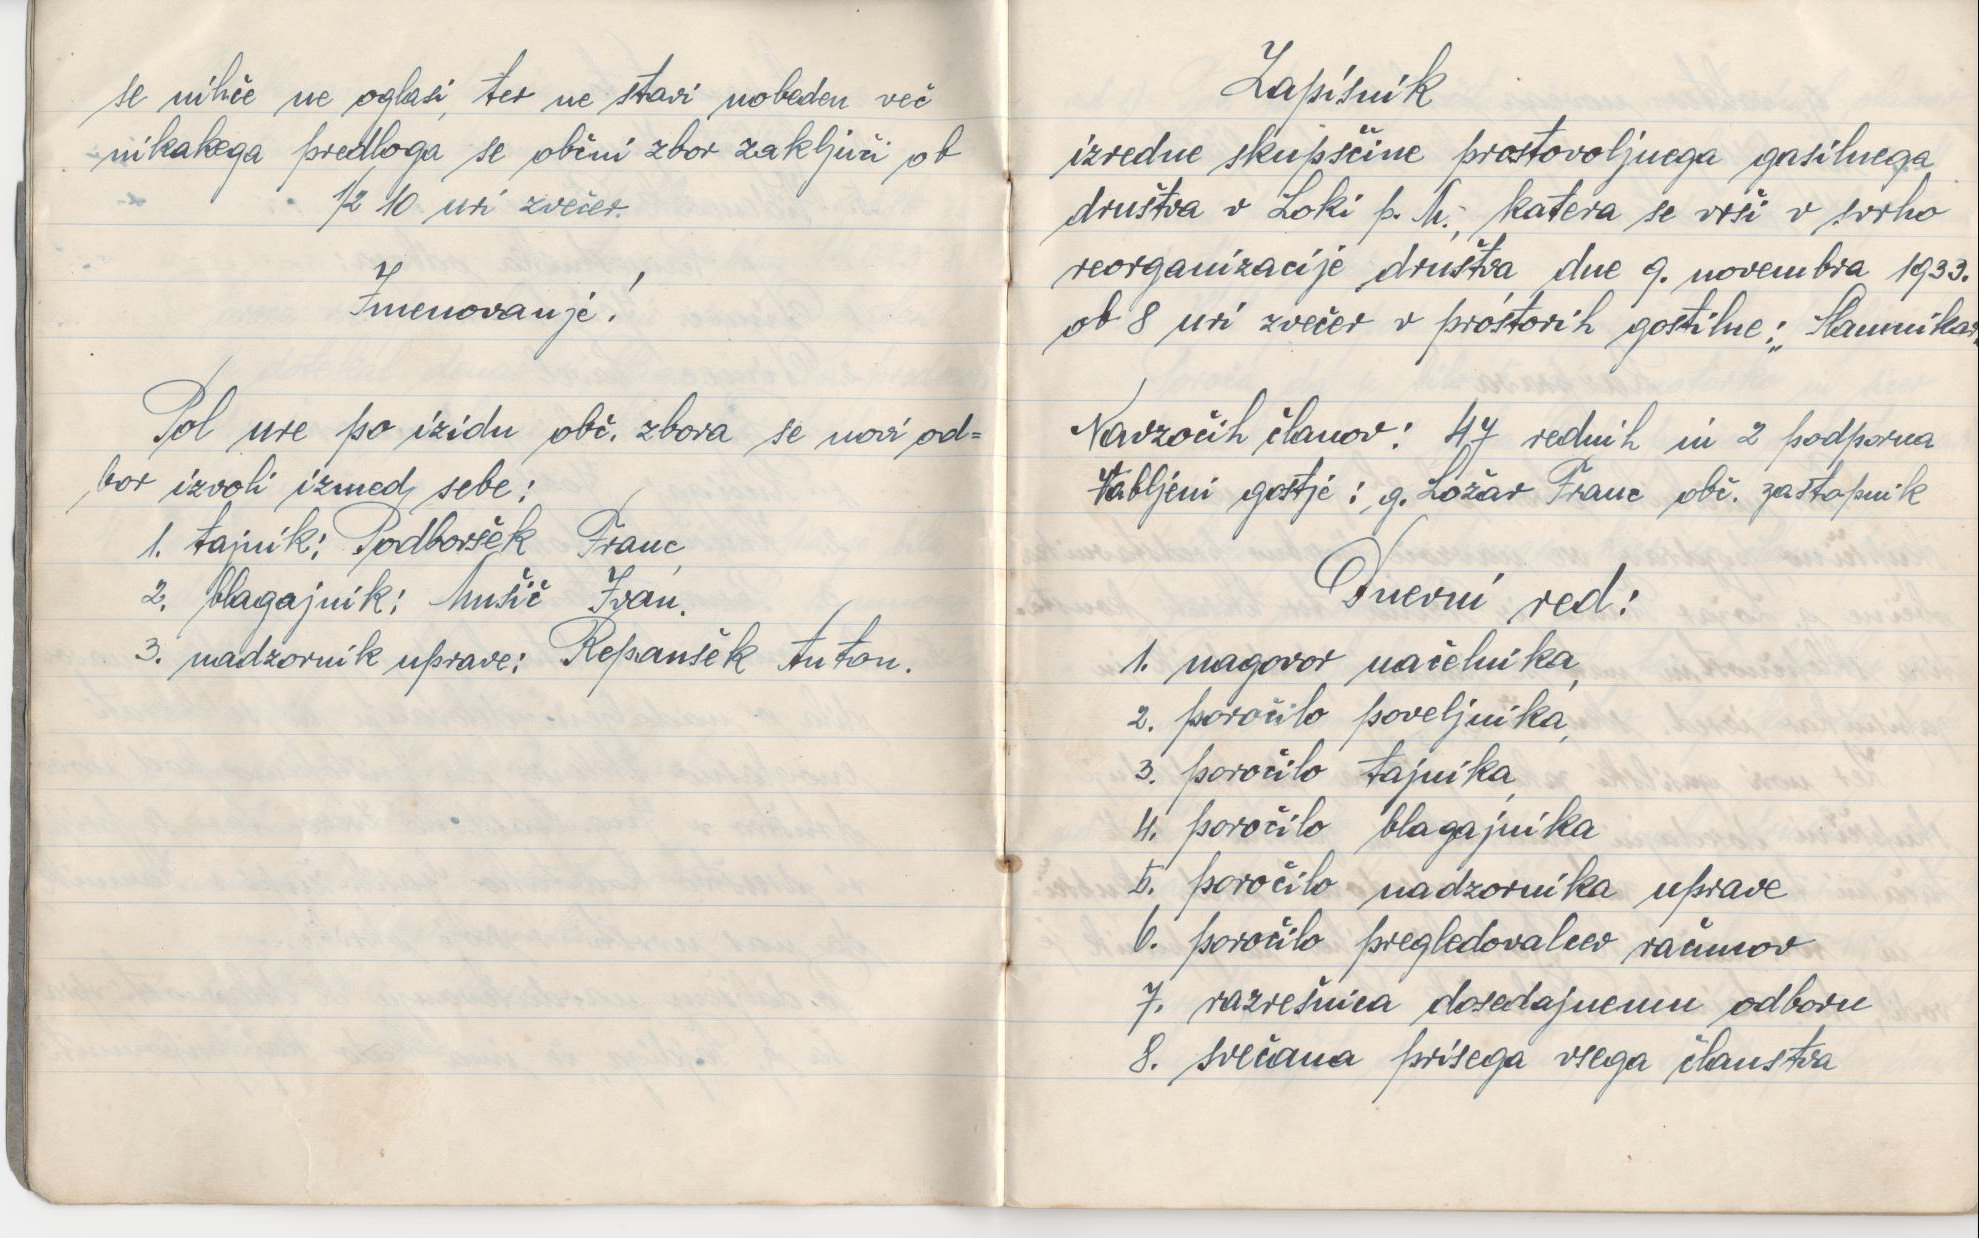 se nihče ne oglasi, ter ne stavi nobeden več
nikakega predloga se občni zbor zaključi ob
1/2 10 uri zvečer.
Imenovanje!
Pol ure po izidu obč. zbora se novi od=
bor izvoli izmed sebe:
1. tajnik: Podboršek Franc,
2. blagajnik: Mušič Ivan.
3. nadzornik uprave: Repanšek Anton.
Zapisnik
izredne skupščine prostovoljnega gasilnega
društva v Loki p. M., katera se vrši v svrho
reorganizacije društva dne 9. novembra 1933.
ob 8 uri zvečer v prostorih gostilne: „Slamnikar"
Navzočih članov: 47 rednih in 2 podporna
Vabljeni gostje: g. Ložar Franc obč. zastopnik
Dnevni red:
1. nagovor načelnika,
2. poročilo poveljnika,
3. poročilo tajnika,
4. poročilo blagajnika
5. poročilo nadzornika uprave
6. poročilo pregledovalcev računov
7. razrešnica dosedajnemu odboru
8. svečana prisega vsega članstva